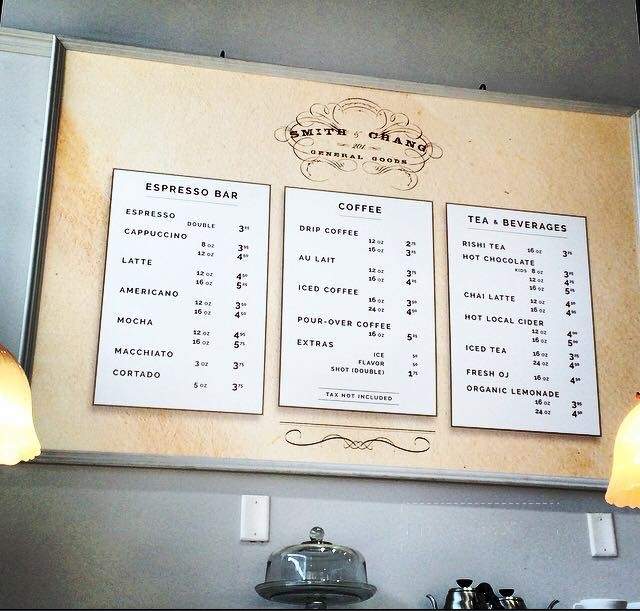 SMITH & CHANG
201
GENERAL GOODS
ESPRESSO BAR
ESPRESSO
DOUBLE 3²⁵
CAPPUCCINO
8 OZ 3⁹⁵
12 OZ 4⁵⁰
LATTE
12 OZ 4⁵⁰
16 OZ 5²⁵
AMERICANO
12 OZ 3⁵⁰
16 OZ 4⁵⁰
MOCHA
12 OZ 4⁹⁵
16 OZ 5⁷⁵
MACCHIATO
3 OZ 3⁷⁵
CORTADO
5 OZ 3⁷⁵
COFFEE
DRIP COFFEE
12 OZ 2⁷⁵
16 OZ 3²⁵
AU LAIT
12 OZ 3⁷⁵
16 OZ 4²⁵
ICED COFFEE
16 OZ 3⁵⁰
24 OZ 4⁵⁰
POUR-OVER COFFEE
16 OZ 5²⁵
EXTRAS
ICE 50
FLAVOR 50
SHOT (DOUBLE) 1⁷⁵
TAX NOT INCLUDED
TEA & BEVERAGES
RISHI TEA 16 OZ 3²⁵
HOT CHOCOLATE
KIDS 8 OZ 3²⁵
12 OZ 4²⁵
16 OZ 5⁰⁰
CHAI LATTE 12 OZ 4⁵⁰
16 OZ 4⁹⁵
HOT LOCAL CIDER
12 OZ 4⁰⁰
16 OZ 5⁰⁰
ICED TEA 16 OZ 3²⁵
24 OZ 4²⁵
FRESH OJ 16 OZ 4⁵⁰
ORGANIC LEMONADE
16 OZ 3⁹⁵
24 OZ 4⁵⁰